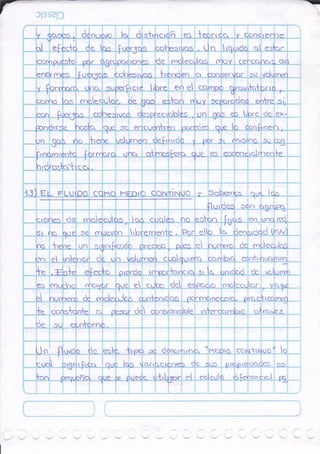 y gases, denuevo la distinción es teorica y concierne
al efecto de las fuerzas cohesivas. Un liquido al estar
compuesto por agrupaciones de moleculas muy cercanas con
enormes fuerzas cohesivas tienden a conservar su volumen
y formara una superficie libre en el campo gravitatorio,
como las moleculas de gas estan muy separadas entre si,
con fuerzas cohesivas despreciables, un gas es libre de ex-
pandirse hasta que se encuentren paredes que lo confinen,
un gas no tiene volumen definido y por si mismo su con
finamiento formara una atmosfera que es esencialmente
hidrostatica.
1.3) EL FLUIDO COMO MEDIO CONTINUO = Sabemos que los
fluidos son agrupa
ciones de moleculas, las cuales no estan fijas en una red,
si no que se mueven libremente. Por ello la densidad (m/v)
no tiene un significado preciso, pues el numero de moleculas
en el interior de un volumen cualquiera cambia continuamen
te. Este efecto pierde importancia si la unidad de volumen
es mucho mayor que el cubo del espacio molecular, ya que
el numero de moleculas contenidas permanecera practicamen
te constante a pesar del considerable intercambio atraves
de su contorno.
Un fluido de este tipo se denomina "medio continuo" lo
cual significa que las variaciones de sus propiedades es
tan pequeña que se puede utilizar el calculo diferencial pa